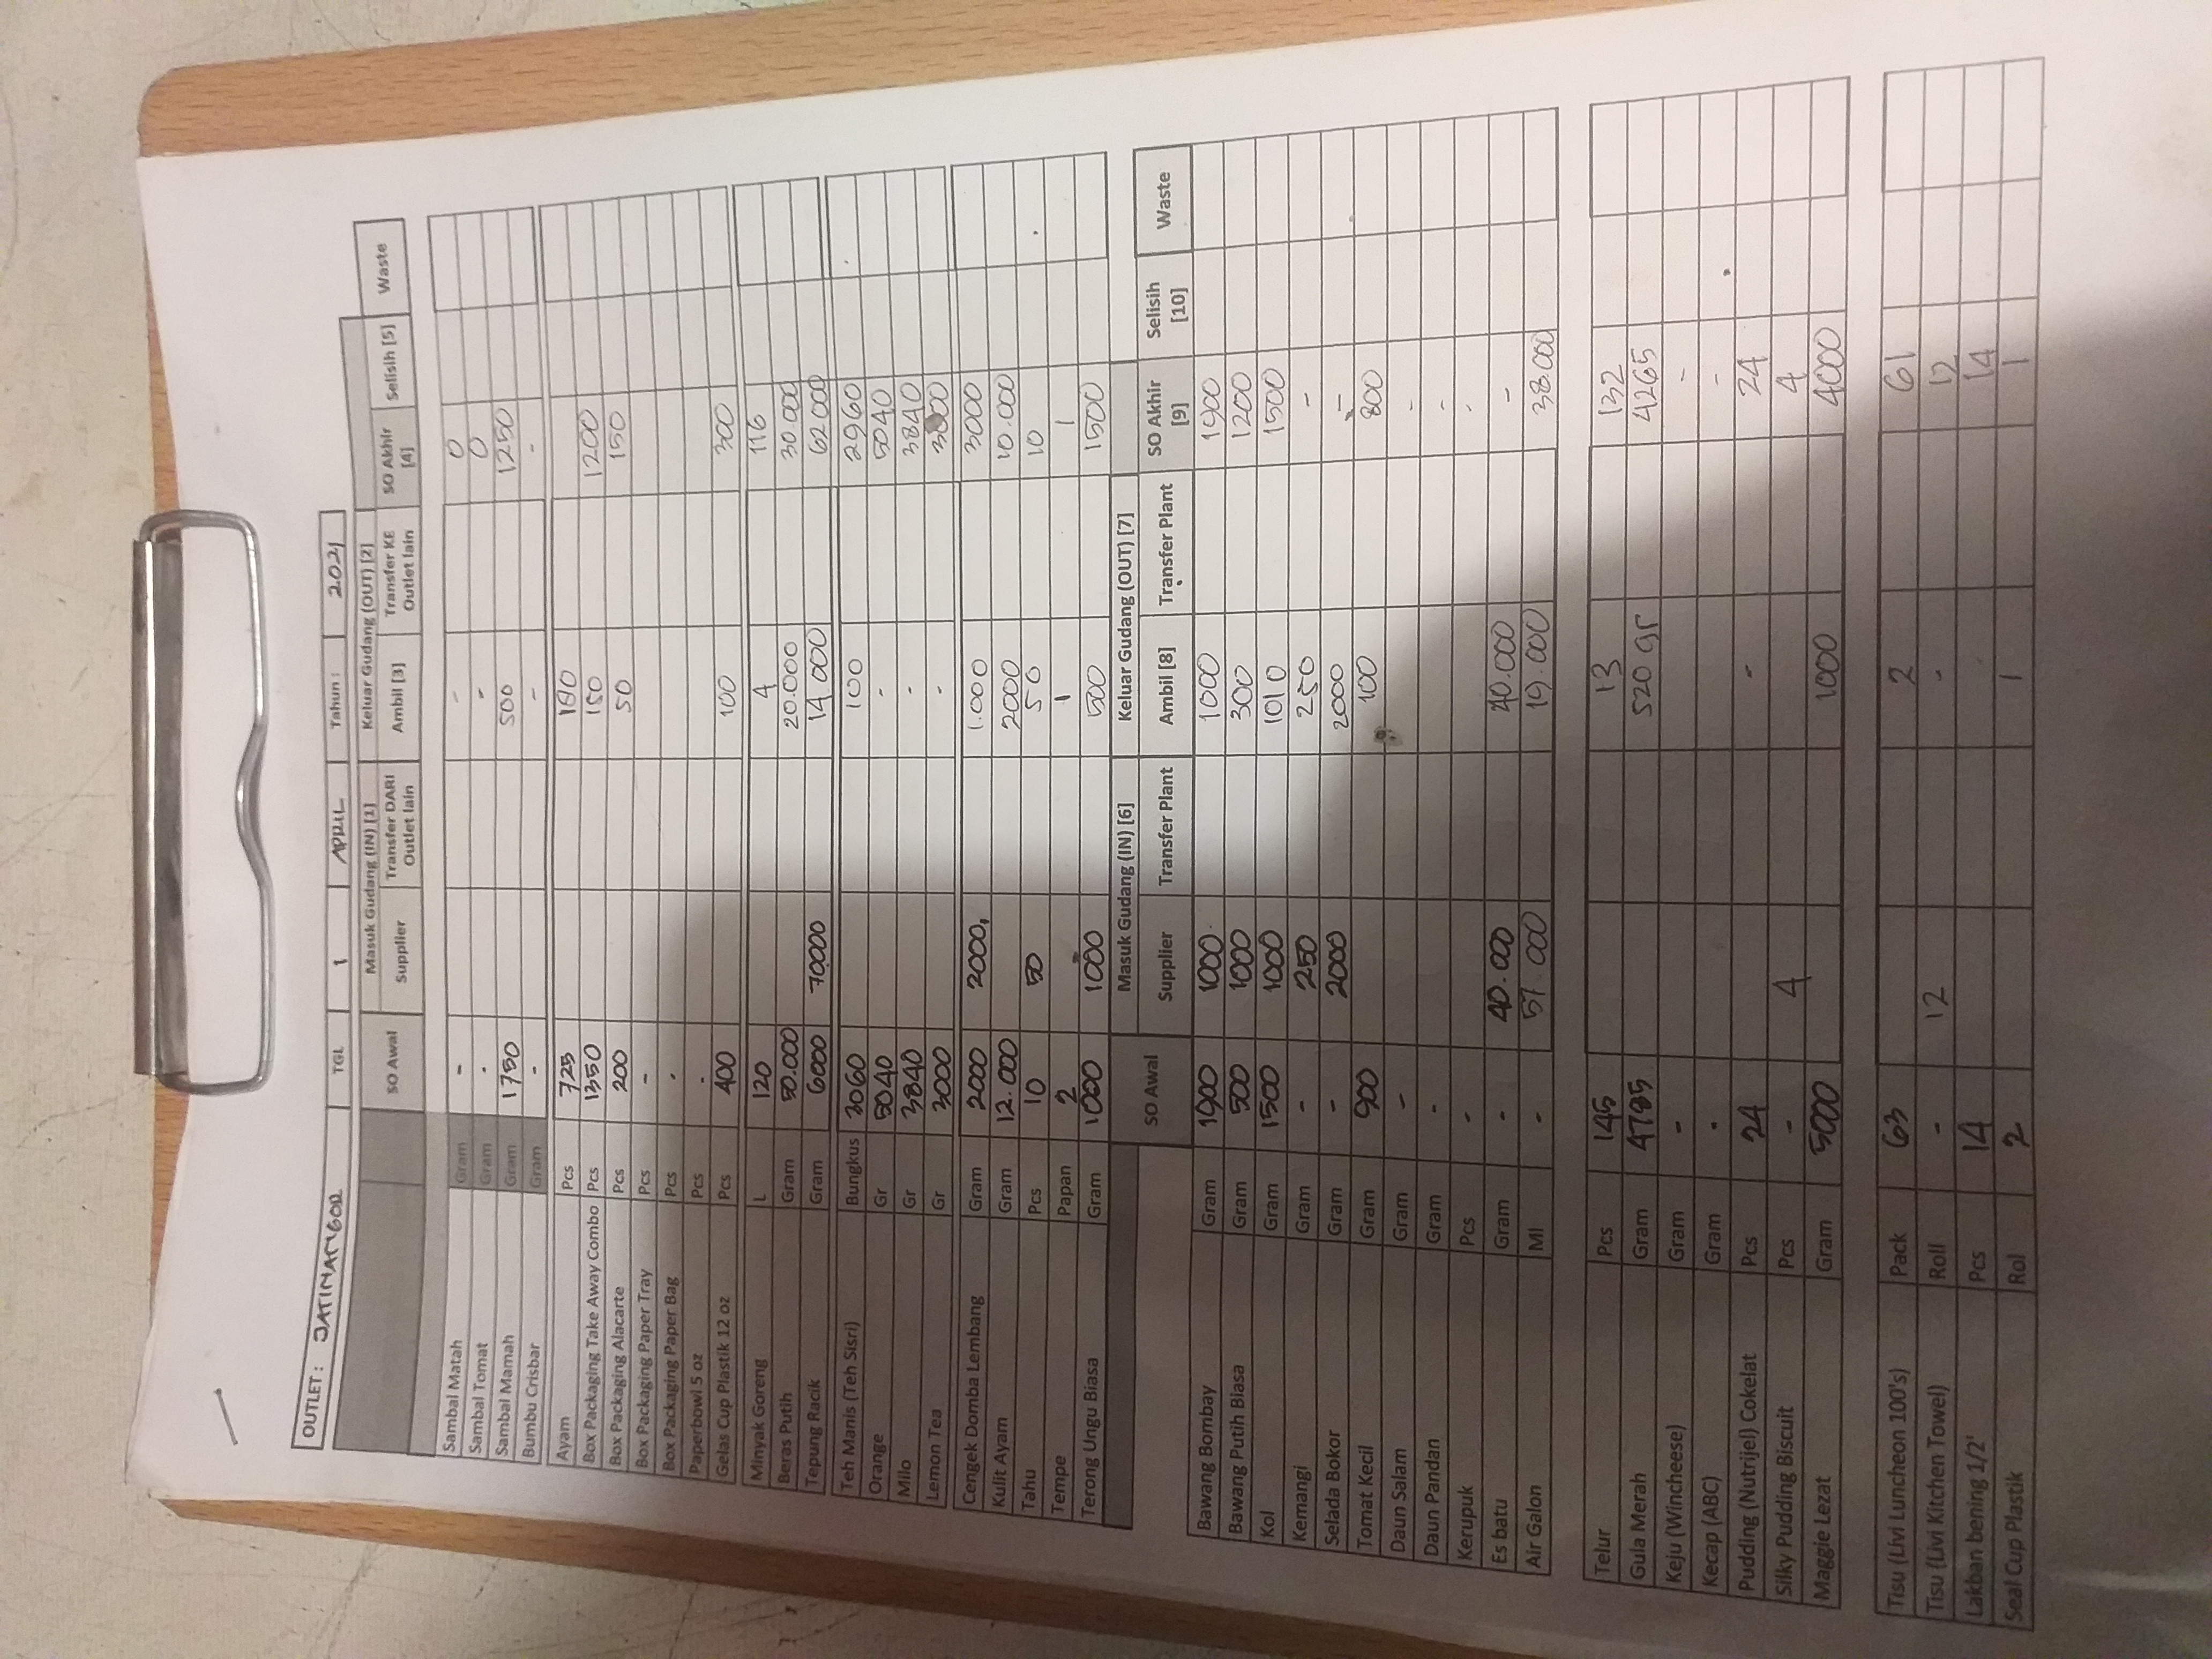 OUTLET : JATINANGOR TGL 1 APRIL Tahun : 2021
SO Awal Masuk Gudang (IN) [1] Keluar Gudang (OUT) [2] SO Akhir [4] Selisih [5] Waste
Supplier Transfer DARI Outlet lain Ambil [3] Transfer KE Outlet lain
Sambal Matah Gram - - 0
Sambal Tomat Gram - - 0
Sambal Mamah Gram 1750 500 1250
Bumbu Crisbar Gram - - -
Ayam Pcs 725
Box Packaging Take Away Combo Pcs 1350 150 1200
Box Packaging Alacarte Pcs 200 50 150
Box Packaging Paper Tray Pcs -
Box Packaging Paper Bag Pcs -
Paperbowl 5 oz Pcs -
Gelas Cup Plastik 12 oz Pcs 400 100 300
Minyak Goreng L 120 4 116
Beras Putih Gram 50.000 20.000 30.000
Tepung Racik Gram 6000 70000 14.000 62000
Teh Manis (Teh Sisri) Bungkus 3060 100 2960
Orange Gr 5040 - 5040
Milo Gr 3840 - 3840
Lemon Tea Gr 3000 - 3000
Cengek Domba Lembang Gram 2000 2000, 1.000 3000
Kulit Ayam Gram 12.000 2000 10.000
Tahu Pcs 10 50 50 10
Tempe Papan 2 1 1
Terong Ungu Biasa Gram 1000 1000 500 1500
SO Awal Masuk Gudang (IN) [6] Keluar Gudang (OUT) [7] SO Akhir [9] Selisih [10] Waste
Supplier Transfer Plant Ambil [8] Transfer Plant
Bawang Bombay Gram 1900 1000 1000 1900
Bawang Putih Biasa Gram 500 1000 300 1200
Kol Gram 1500 1000 1010 1500
Kemangi Gram - 250 250 -
Selada Bokor Gram - 2000 2000 -
Tomat Kecil Gram 900 100 800
Daun Salam Gram - -
Daun Pandan Gram - -
Kerupuk Pcs - -
Es batu Gram - 40.000 40.000 -
Air Galon Ml - 57.000 19.000 38.000
Telur Pcs 145 13 132
Gula Merah Gram 4785 520 gr 4265
Keju (Wincheese) Gram - -
Kecap (ABC) Gram - -
Pudding (Nutrijel) Cokelat Pcs 24 - 24
Silky Pudding Biscuit Pcs - 4 4
Maggie Lezat Gram 5000 1000 4000
Tisu (Livi Luncheon 100's) Pack 63 2 61
Tisu (Livi Kitchen Towel) Roll - 12 - 12
Lakban bening 1/2' Pcs 14 14
Seal Cup Plastik Rol 2 1 1